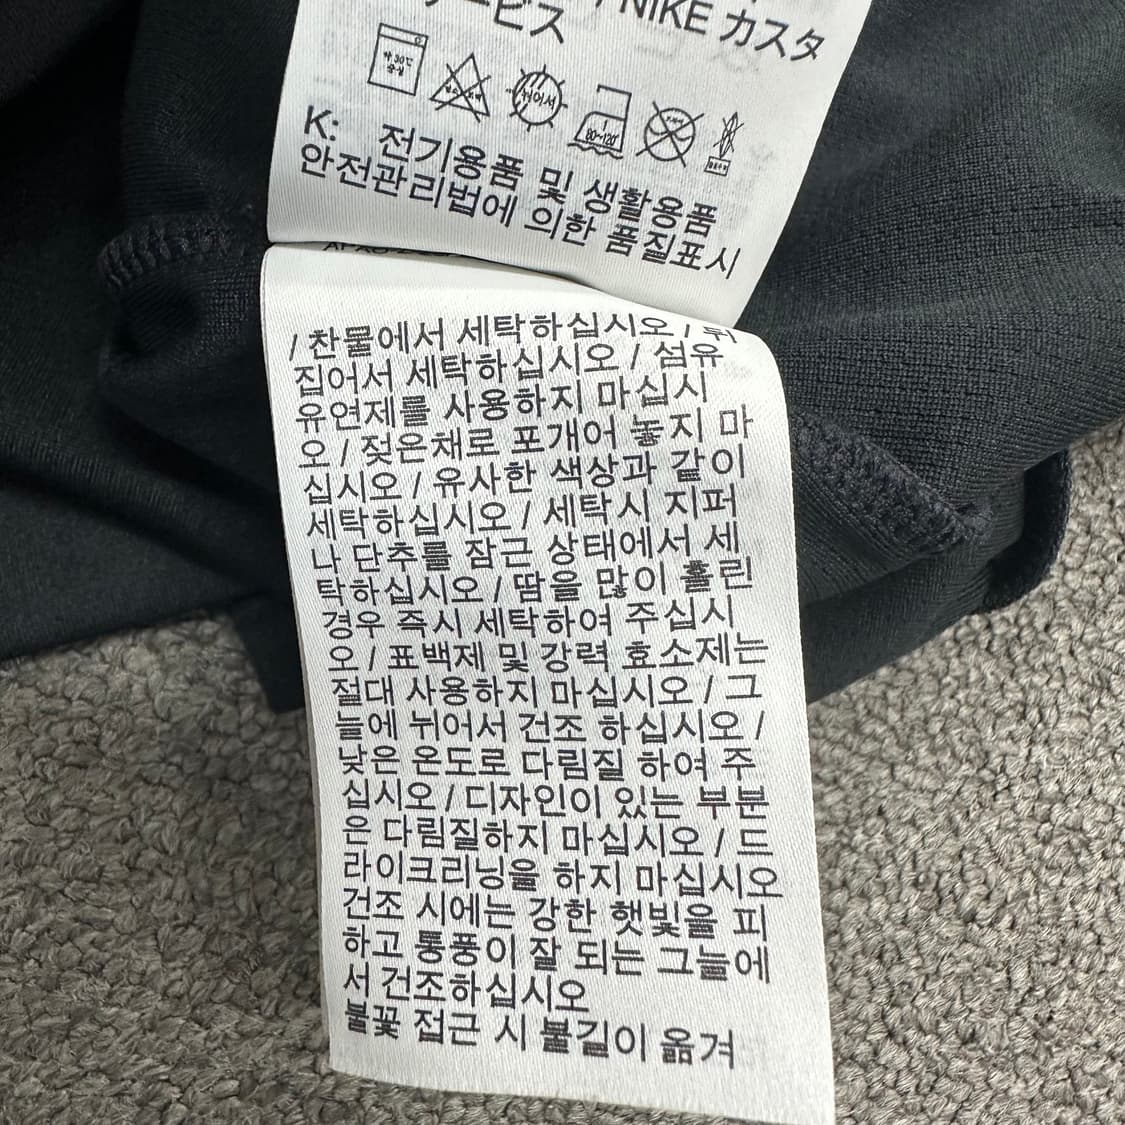 NIKE カスタ
ービス
약30℃
중성
80~120℃
K: 전기용품 및 생활용품
안전관리법에 의한 품질표시
/ 찬물에서 세탁하십시오 / 뒤
집어서 세탁하십시오 / 섬유
유연제를 사용하지 마십시
오 / 젖은채로 포개어 놓지 마
십시오 / 유사한 색상과 같이
세탁하십시오 / 세탁시 지퍼
나 단추를 잠근 상태에서 세
탁하십시오 / 땀을 많이 흘린
경우 즉시 세탁하여 주십시
오 / 표백제 및 강력 효소제는
절대 사용하지 마십시오 / 그
늘에 뉘어서 건조 하십시오 /
낮은 온도로 다림질 하여 주
십시오 / 디자인이 있는 부분
은 다림질하지 마십시오 / 드
라이크리닝을 하지 마십시오
건조 시에는 강한 햇빛을 피
하고 통풍이 잘 되는 그늘에
서 건조하십시오
불꽃 접근 시 불길이 옮겨